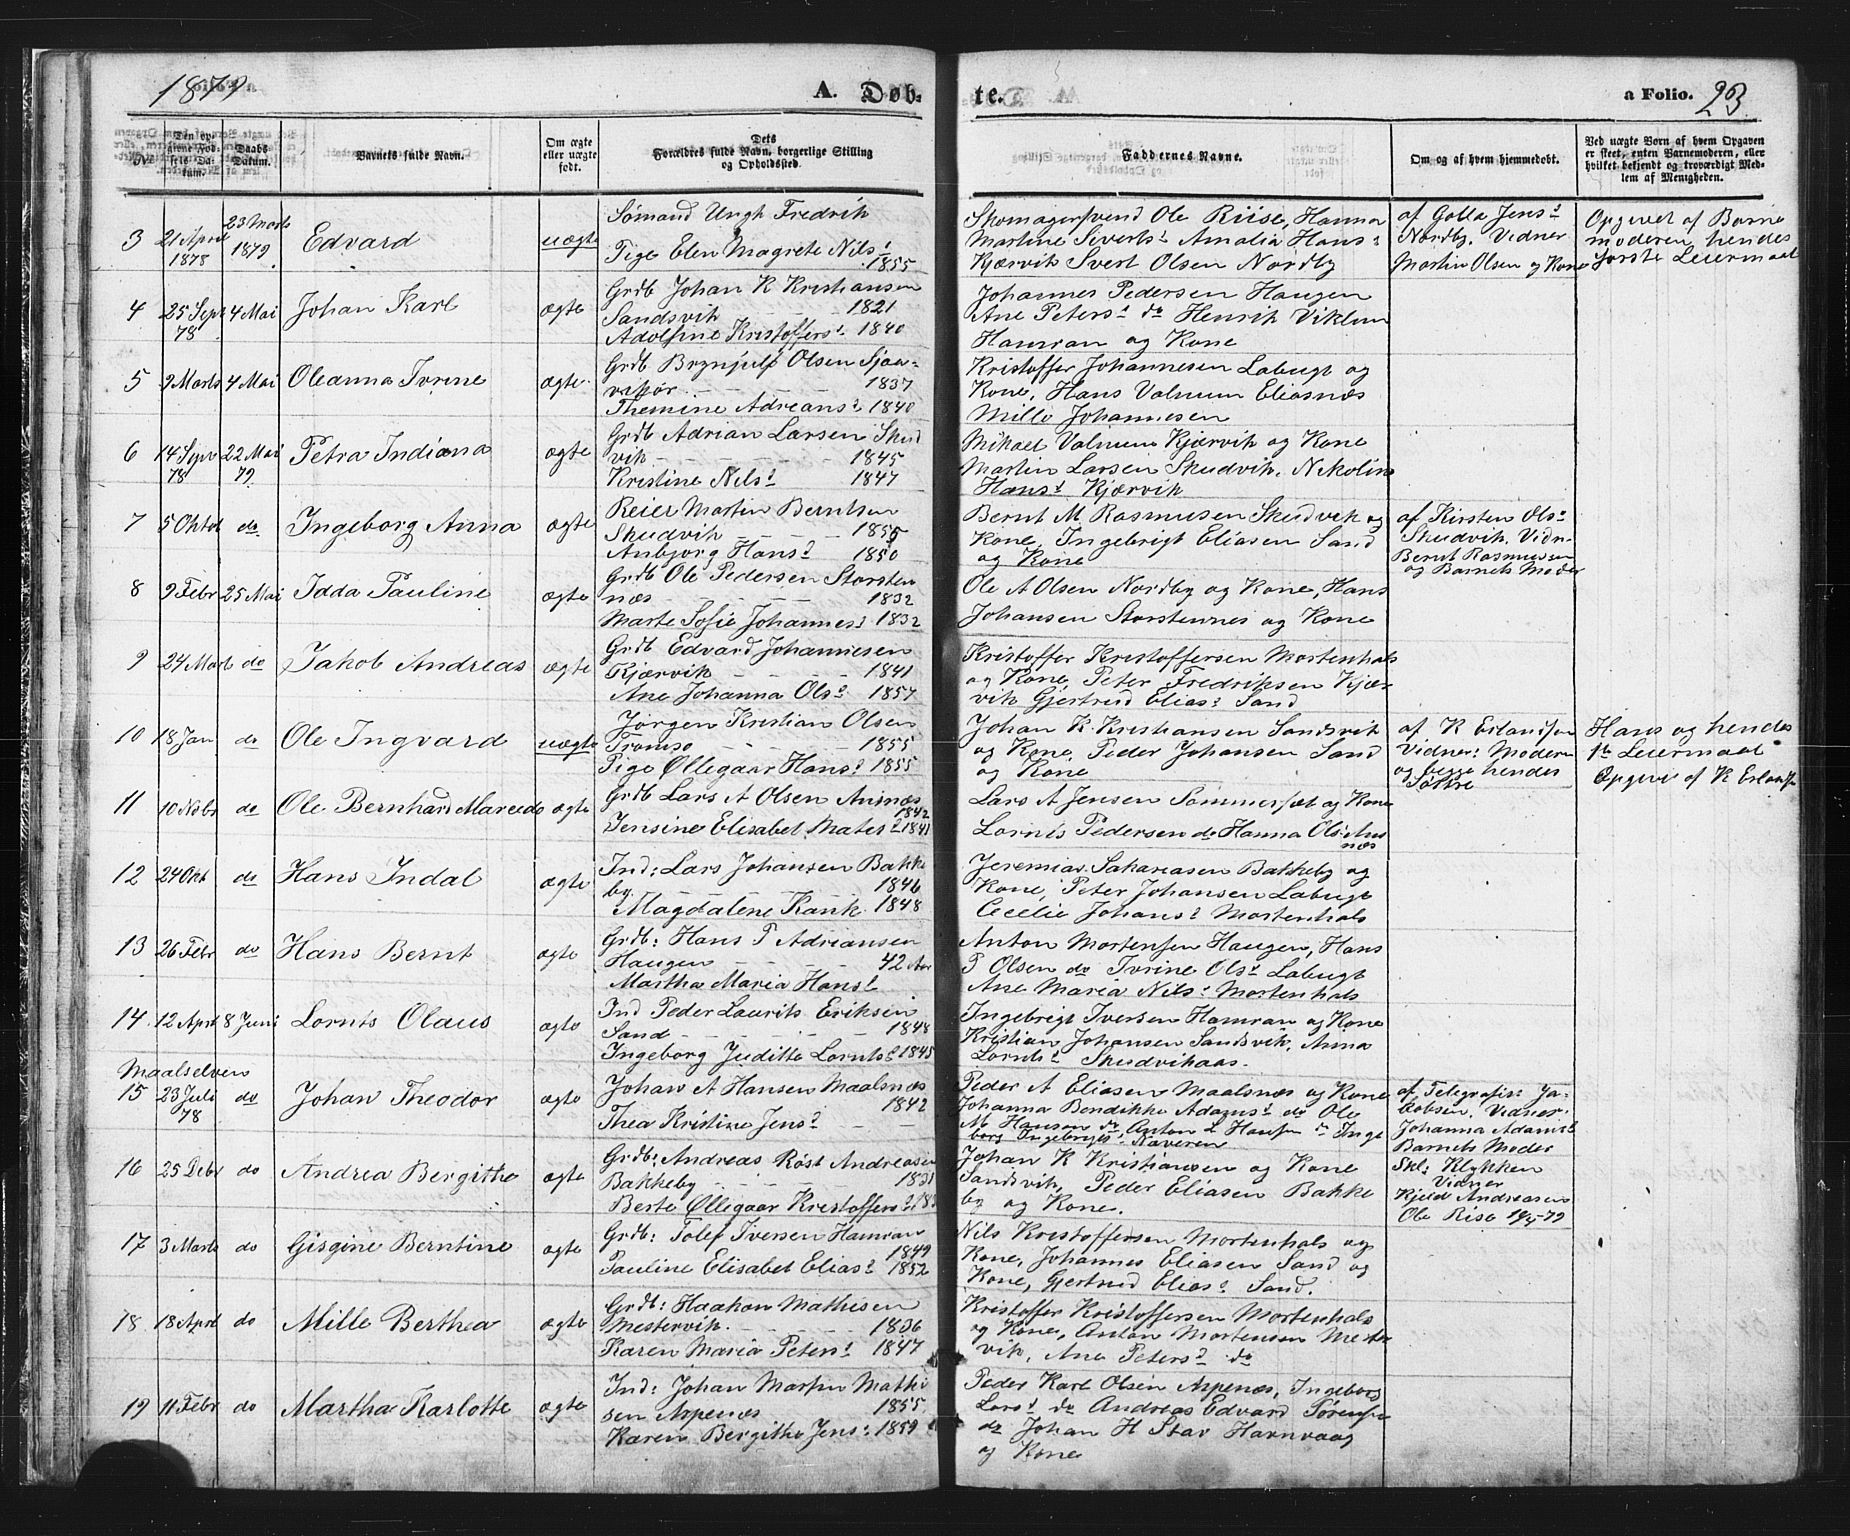 1879
A. Døb-
te.
a Folio. 23
No
Den op-
givne Fød-
sels Da-
tum.
Daabs
Datum.
Barnets fulde Navn.
Om ægte
eller uægte
født.
Dets
Forældres fulde Navn, borgerlige Stilling
og Opholdssted.
Faddernes Navne.
Om og af hvem hjemmedøbt.
Ved uægte Børn af hvem Opgaven
er skeet, enten Barnemoderen, eller
hvilket bekjendt og troværdigt Med-
lem af Menigheden.
3 21 April 1878 23 Marts 1879 Edvard uægte
Sømand Ungk Fredrik
Pige Elen Magrete Nils: 1855
Skomagersvend Ole Riise, Hanna
Martine Siverts: Amalia Hans:
Kjærvik Sivert Olsen Nordby
af Golla Jens:
Nordby. Vidner
Martin Olsen og Kone
Opgivet af Barne
moderen hendes
første Leiermaal
4 25 Sept 78 4 Mai Johan Karl ægte
Grdb Johan K Kristiansen
Sandsvik 1821
Adolfine Kristoffers: 1840
Johannes Pedersen Haugen
Ane Peters: do Henrik Viklum
Hamran og Kone
5 9 Marts 4 Mai Oleanna Ivrine ægte
Grdb Brynjulf Olsen Sjaa-
vikør 1837
Themine Adrians: 1840
Kristoffer Johannesen Labugt og
Kone, Hans Valnum Eliasnæs
Mille Johannesen
6 14 Sept 78 22 Mai 79 Petra Indiana ægte
Grdb Adrian Larsen Skud
vik 1845
Kristine Nils: 1847
Mikael Valnum Kjærvik og Kone
Martin Larsen Skudvik, Nikoline
Hans: Kjærvik
7 5 Oktob do Ingeborg Anna ægte
Reier Martin Berntsen
Skudvik 1855
Anbjørg Hans: 1850
Bernt M. Rasmusen Skudvik og
Kone, Ingebrigt Eliasen Sand
og Kone
af Kirsten Ols:
Skudvik, Vidn-
Bernt Rasmussen
og Barnets Moder
8 9 Febr 25 Mai Idda Pauline ægte
Grdb Ole Pedersen Storsten
næs 1832
Marte Sofie Johannes: 1832
Ole A Olsen Nordby og Kone, Hans
Johansen Storstennes og Kone
9 24 Marts do Jakob Andreas ægte
Grdb Edvard Johannesen
Kjærvik 1841
Ane Johanna Ols: 1857
Kristoffer Kristoffersen Mortenhals
og Kone, Peter Fredriksen Kjær
vik Gjertrud Elias: Sand
10 18 Jan do Ole Ingvard uægte
Jørgen Kristian Olsen
Tromsø 1855
Pige Øllegaar Hans: 1855
Johan K. Kristiansen Sandsvik
og Kone, Peder Johansen Sand
og Kone
af K Erlandsen
Vidner: Moderen
og begge hendes
Søstre
Hans og hendes
1te Leiermaal
Opgivet af K Erlands
11 10 Novbr do Ole Bernhard Mareda ægte
Grdb Lars A Olsen Ansnæs
1842
Jensine Elisabet Mates: 1841
Lars A Jensen Sommersæt og Kone
Lornts Pedersen do Hanna Ols: Ans
næs
12 24 Okt do Hans Indal ægte
Ind: Lars Johansen Bakke
by 1846
Magdalene Rank 1848
Jeremias Sakariasen Bakkeby og
Kone, Peter Johansen Labugt
Cecelie Johans: Mortenhals
13 26 Febr do Hans Bernt ægte
Grdb: Hans P Adriansen
Haugen 42 Aar
Martha Maria Hans:
Anton Mortensen Haugen, Hans
P Olsen do Ivrine Ols: Labugt
Ane Maria Nils: Mortenhals
14 12 April 8 Juni Lornts Olaus ægte
Ind Peder Laurits Eriksen
Sand 1848
Ingeborg Juditte Lornts: 1845
Ingebrigt Iversen Hamran og Kone
Kristian Johansen Sandsvik, Anna
Lornts: Skudvikaas.
Maalselven
15 23 Juli 78 do Johan Theodor ægte
Johan A Hansen Maalsnæs
1842
Thea Kristine Jens:
Peder A Eliasen Maalsnæs og Kone
Johanna Bendikke Adams: do Ole
M Hansen do, Anton L Hansen do Inge
borg Ingebrigts: Naveren
af Telegrafist Ja-
cobsen, Vidner:
Johanna Adams:
Barnets Moder
16 25 Debr do Andrea Bergithe ægte
Grdb: Andreas Røst Andreasen
Bakkeby 1831
Berte Øllegaar Kristoffers:
Johan K Kristiansen og Kone
Sandsvik, Peder Eliasen Bakke
by og Kone.
Skl: Klykken
Vidner
Kjeld Andreasen
Ole Rise
17 3 Marts do Gisgine Berntine ægte
Grdb: Tolef Iversen Hamran
1849
Pauline Elisabet Elias: 1852
Nils Kristoffersen Mortenhals og
Kone, Johannes Eliasen Sand og
Kone, Gjertrud Elias: Sand.
18 18 April do Mille Berthea ægte
Grdb: Haakon Mathisen
Mestervik. 1836
Karen Maria Peters: 1847
Kristoffer Kristoffersen Mortenhals
og Kone, Anton Mortensen Mester
vik, Ane Peters: do
19 11 Febr do Martha Karlotte ægte
Ind: Johan Martin Mathi
sen Aspenæs 1855
Karen Bergithe Jens: 1859
Peder Karl Olsen Aspenæs, Ingeborg
Lars: do Andreas Edvard Sørensen
do Johan H Stav Havnvaag
og Kone